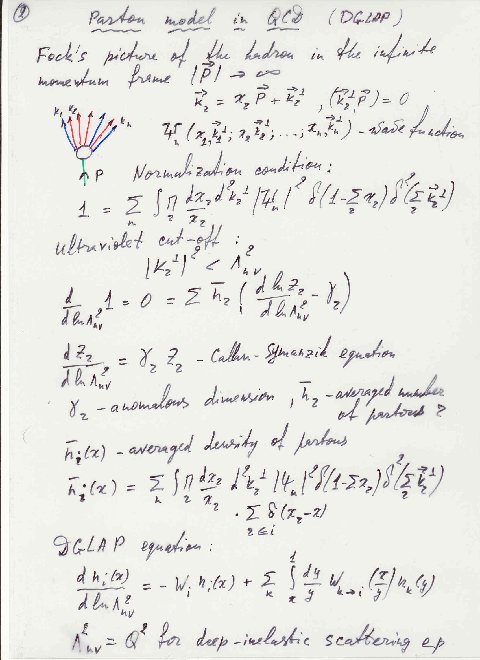 2
Parton model in QCD (DGLAP)
Fock's picture of the hadron in the infinite
momentum frame |P⃗| → ∞
k⃗₂ = x₂ P⃗ + k⃗₂^⊥ , (k⃗₂^⊥ P⃗) = 0
k₁ k₂ kₙ
Ψₙ(x₁, k⃗₁^⊥; x₂, k⃗₂^⊥; ...; xₙ, k⃗ₙ^⊥) - wave function
P
Normalization condition:
1 = Σ_n ∫ Π_2 dx₂/x₂ d²k₂^⊥ |Ψₙ|² δ(1-Σ_2 x₂) δ²(Σ_2 k⃗₂^⊥)
Ultraviolet cut-off:
|k₂^⊥|² < Λ²_uv
d/dlnΛ²_uv 1 = 0 = Σ n̄₂ (d ln Z₂/dlnΛ²_uv - γ₂)
dZ₂/dlnΛ²_uv = γ₂ Z₂ - Callan-Symanzik equation
γ₂ - anomalous dimension, n̄₂ - averaged number
of partons 2
n̄ᵢ(x) - averaged density of partons
n̄ᵢ(x) = Σ_n ∫ Π_2 dx₂/x₂ d²k₂^⊥ |Ψₙ|² δ(1-Σx₂) δ²(Σ_2 k⃗₂^⊥)
· Σ_{2∈i} δ(x₂-x)
DGLAP equation:
dnᵢ(x)/dlnΛ²_uv = -Wᵢ nᵢ(x) + Σ_k ∫_x^1 dy/y W_{k→i}(x/y) n_k(y)
Λ²_uv = Q² for deep-inelastic scattering ep